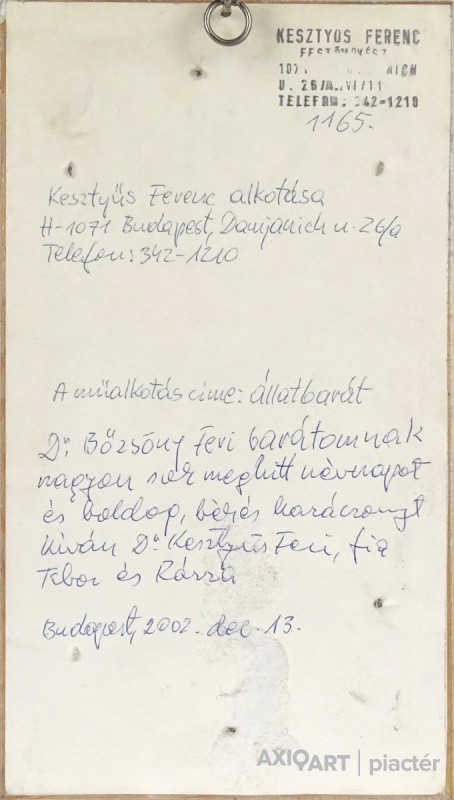 KESZTYŰS FERENC
FESTŐMŰVÉSZ
107
U. 26/A. VI/11
TELEFON: 342-1210
1165.
Kesztyűs Ferenc alkotása
H-1071 Budapest, Damjanich u. 26/a
Telefon: 342-1210
A műalkotás címe: állatbarát
Dr. Bőzsöny Feri barátomnak
nagyon sok meghitt névnapot
és boldog, békés karácsonyt
kíván Dr. Kesztyűs Feri, fia
Tibor és Rózsa
Budapest, 2002. dec. 13.
AXIOART | piactér